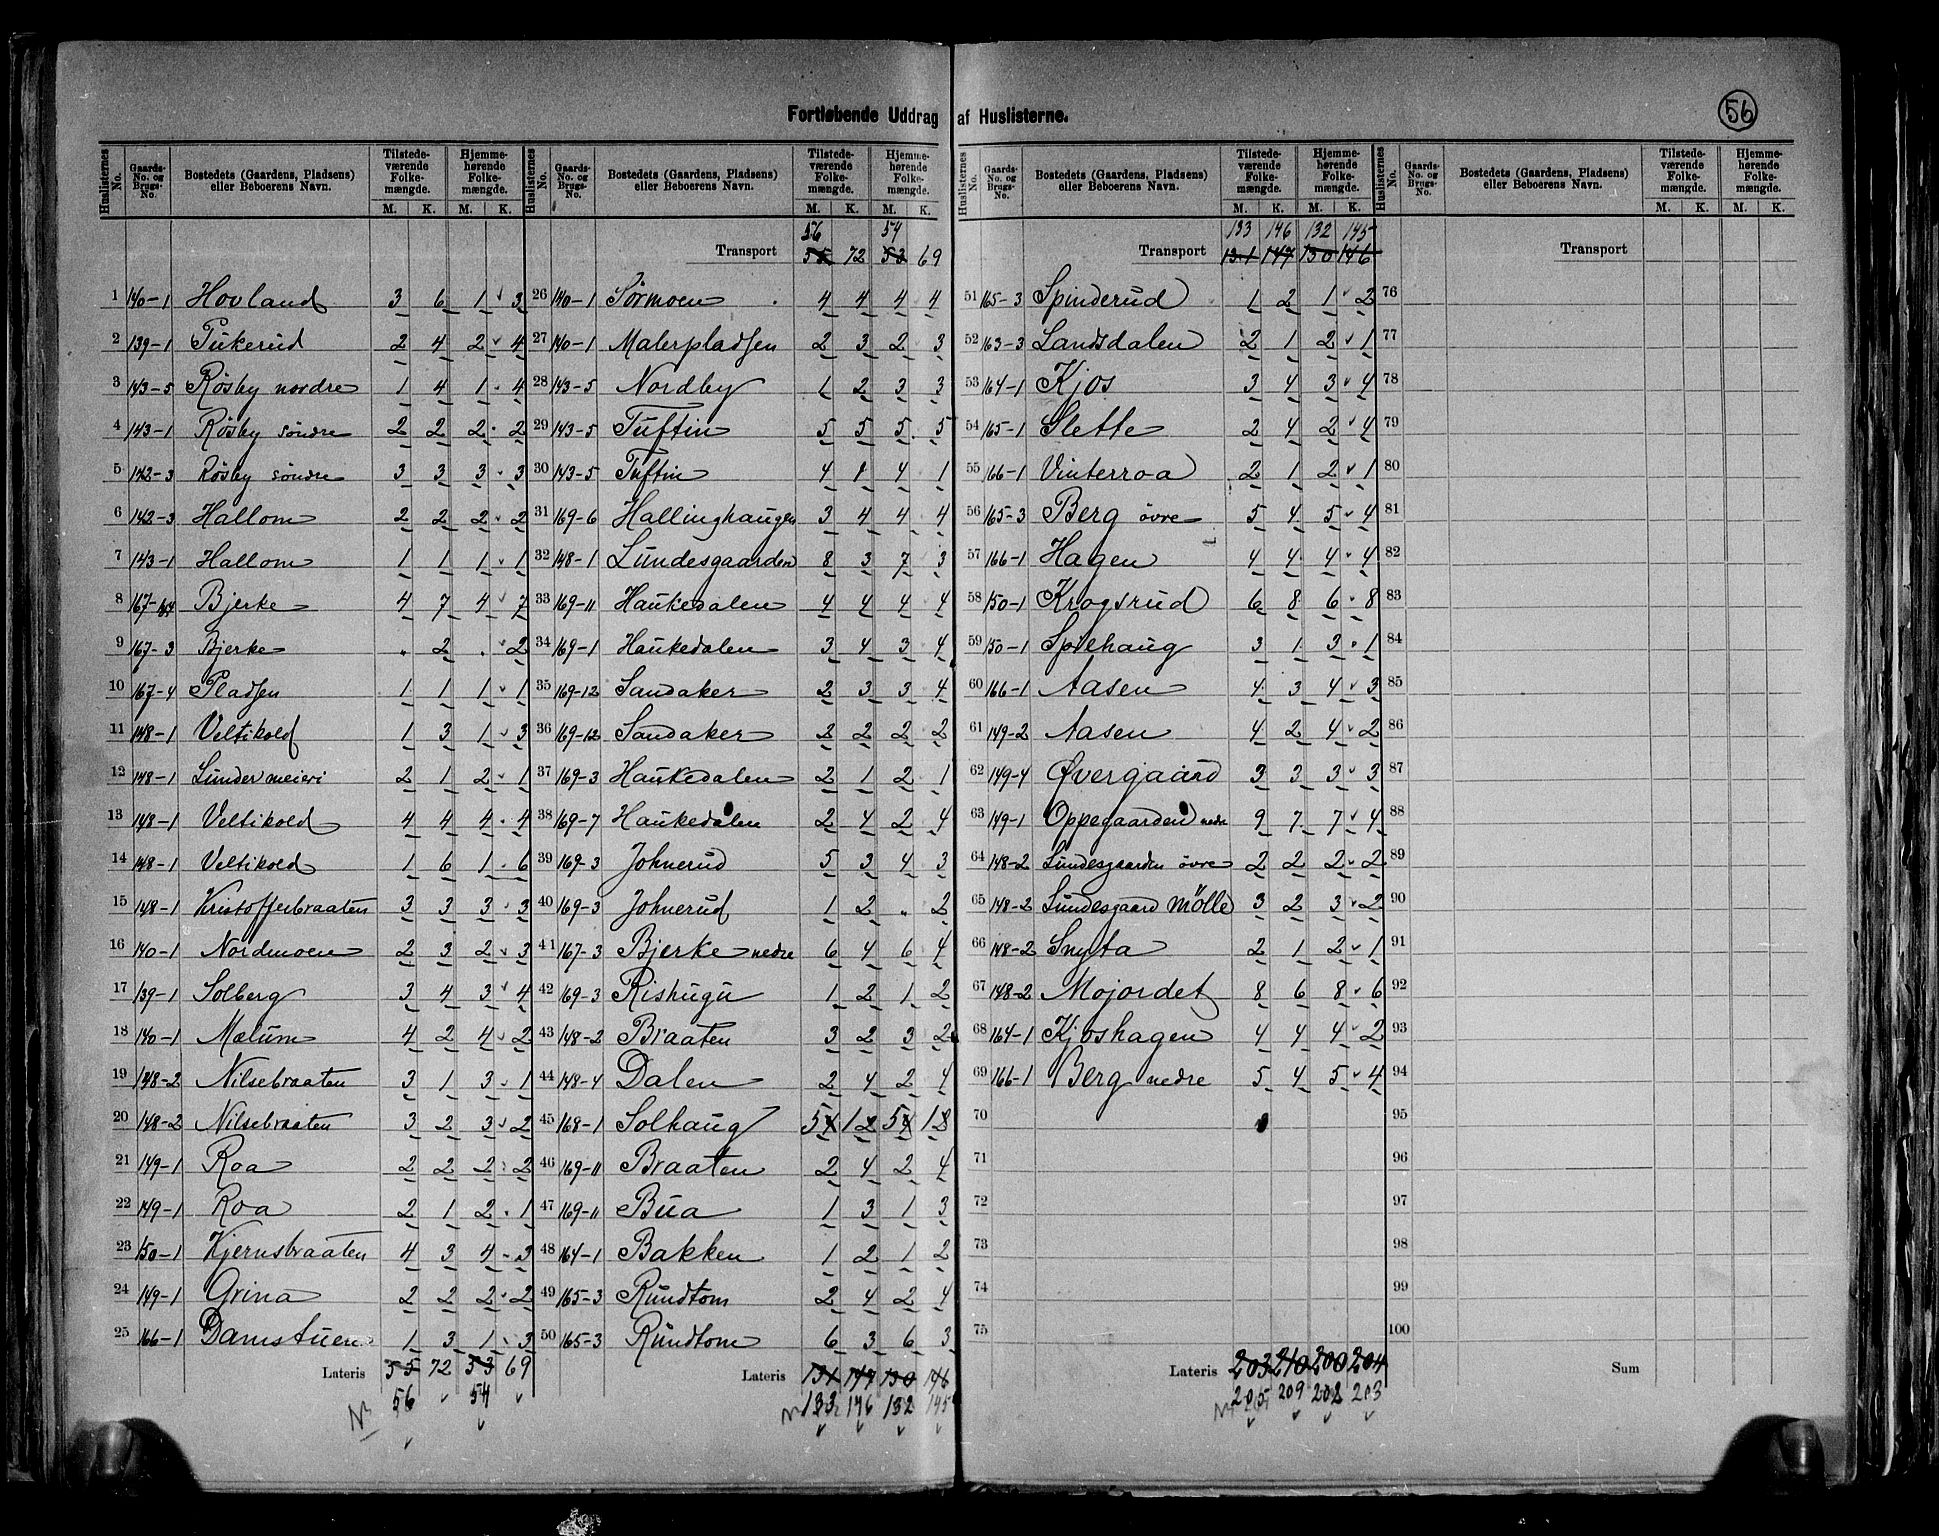 Fortløbende Uddrag af Huslisterne.
56
Huslisternes No. Gaards-No. og Brugs-No. Bostedets (Gaardens, Pladsens) eller Beboerens Navn. Tilstedeværende Folkemængde. M. K. Hjemmehørende Folkemængde. M. K.
1 140-1 Hovland 3 6 1 3
2 139-1 Tukerud 2 4 2 4
3 143-5 Røsby nordre 1 4 1 4
4 143-1 Røsby söndre 2 2 2 2
5 142-3 Røsby söndre 3 3 3 3
6 142-3 Hallom 2 2 2 2
7 143-1 Hallom 1 1 1 1
8 167- Bjerke 4 7 4 7
9 167-3 Bjerke . 2 . 2
10 167-4 Pladsen 1 1 1 1
11 148-1 Veltikold 1 3 1 3
12 148-1 Lunder meieri 2 1 2 1
13 148-1 Veltikold 4 4 4 4
14 148-1 Veltikold 1 6 1 6
15 148-1 Kristofferbraaten 3 3 3 3
16 140-1 Nordmoen 2 3 2 3
17 139-1 Solberg 3 4 3 4
18 140-1 Mælum 4 2 4 2
19 148-2 Nilsebraaten 3 1 3 1
20 148-2 Nilsebraaten 3 2 3 2
21 149-1 Roa 2 2 2 2
22 149-1 Roa 2 1 2 1
23 150-1 Kjernsbraaten 4 3 4 3
24 149-1 Grina 2 2 2 2
25 166-1 Damstuen 1 3 1 3
Lateris 55 72 53 69
56 54
Huslisternes No. Gaards-No. og Brugs-No. Bostedets (Gaardens, Pladsens) eller Beboerens Navn. Tilstedeværende Folkemængde. M. K. Hjemmehørende Folkemængde. M. K.
56 54
Transport 55 72 53 69
26 140-1 Sørmoen 4 4 4 4
27 140-1 Malerpladsen 2 3 2 3
28 143-5 Nordby 1 2 3 3
29 143-5 Tuftin 5 5 5 5
30 143-5 Tuftin 4 1 4 1
31 169-6 Hallinghaugen 3 4 4 4
32 148-1 Lundesgaarden 8 3 7 3
33 169-11 Haukedalen 4 4 4 4
34 169-1 Haukedalen 3 4 3 4
35 169-12 Sandaker 2 3 3 4
36 169-12 Sandaker 2 2 2 2
37 169-3 Haukedalen 2 1 2 1
38 169-7 Haukedalen 2 4 2 4
39 169-3 Johnerud 5 3 4 3
40 169-3 Johnerud 1 2 . 2
41 167-3 Bjerke nedre 6 4 6 4
42 169-3 Rishugu 1 2 1 2
43 148-2 Braaten 3 2 3 2
44 148-4 Dalen 2 4 2 4
45 168-1 Solhaug 5 1 5 1
46 169-11 Braaten 2 4 2 4
47 169-11 Bua 1 3 1 3
48 164-1 Bakken 1 2 1 2
49 165-3 Rundtom 2 4 2 4
50 165-3 Rundtom 6 3 6 3
Lateris 131 147 130 146
133 146 132 145
Huslisternes No. Gaards-No. og Brugs-No. Bostedets (Gaardens, Pladsens) eller Beboerens Navn. Tilstedeværende Folkemængde. M. K. Hjemmehørende Folkemængde. M. K.
133 146 132 145
Transport 131 147 130 146
51 165-3 Spinderud 1 2 1 2
52 163-3 Landsdalen 2 1 2 1
53 164-1 Kjos 3 4 3 4
54 165-1 Slette 2 4 2 4
55 166-1 Vinterroa 2 1 2 1
56 165-3 Berg övre 5 4 5 4
57 166-1 Hagen 4 4 4 4
58 150-1 Krogsrud 6 8 6 8
59 150-1 Spilhaug 3 1 3 1
60 166-1 Aasen 4 3 4 3
61 149-2 Aasen 4 2 4 2
62 149-4 Øvergaard 3 3 3 3
63 149-1 Oppegaarden nedre 9 7 7 4
64 148-2 Lundesgaarden övre 2 2 2 2
65 148-2 Lundesgaard Mölle 3 2 3 2
66 148-2 Snyta 2 1 2 1
67 148-2 Mojordet 8 6 8 6
68 164-1 Kjoshagen 4 4 4 2
69 166-1 Berg nedre 5 4 5 4
70
71
72
73
74
75
Lateris 203 210 200 204
205 209 202 203
Huslisternes No. Gaards-No. og Brugs-No. Bostedets (Gaardens, Pladsens) eller Beboerens Navn. Tilstedeværende Folkemængde. M. K. Hjemmehørende Folkemængde. M. K.
Transport
76
77
78
79
80
81
82
83
84
85
86
87
88
89
90
91
92
93
94
95
96
97
98
99
100
Sum